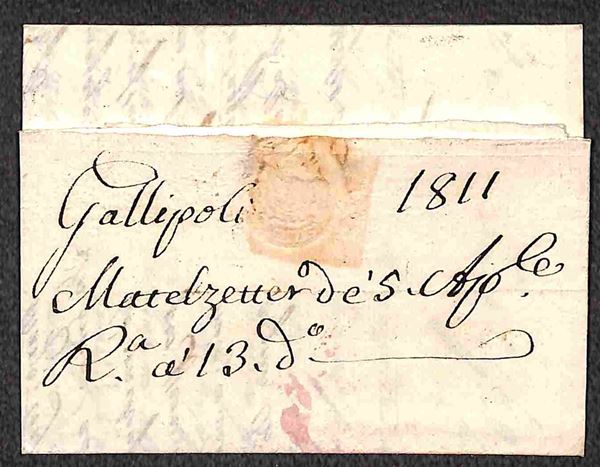 Gallipoli 1811
Matelzetter.º de' 5. Ap.le
R.a a' 13. d.º